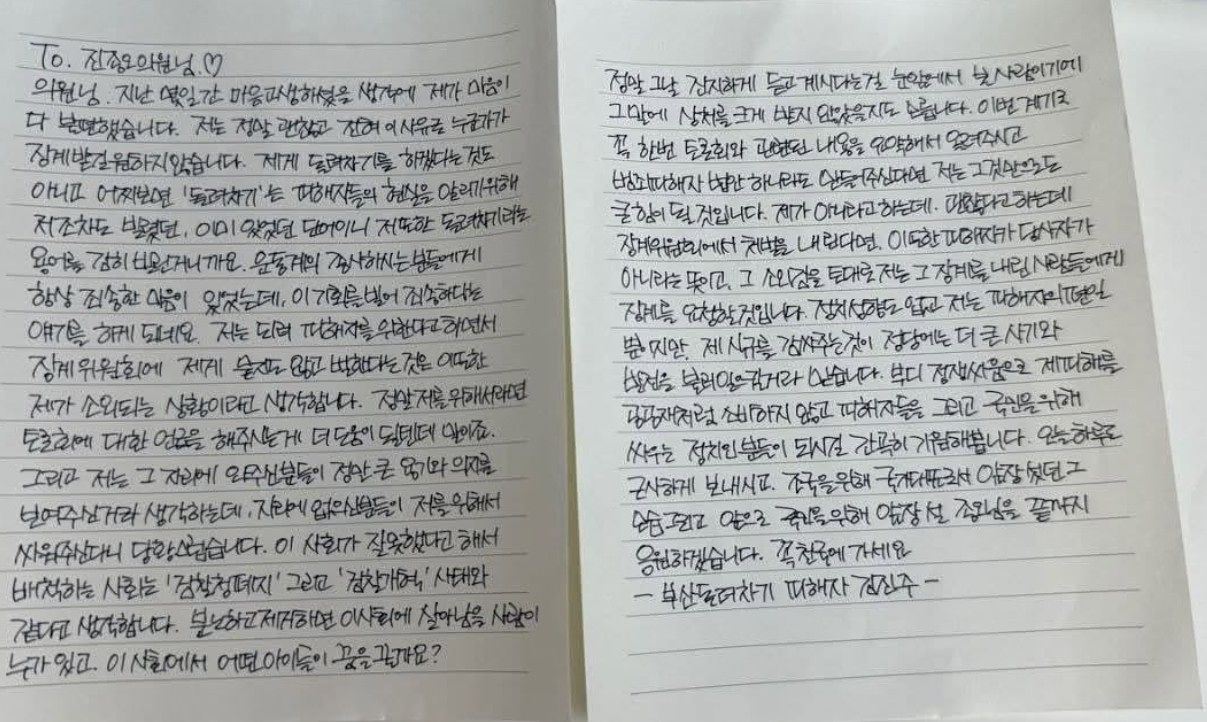 To. 진종오의원님.♡
의원님. 지난 몇일간 마음고생하셨을 생각에 제가 마음이
다 불편했습니다. 저는 정말 괜찮고 전혀 이 사유로 누군가가
징계받길 원하지 않습니다. 제게 돌려차기를 하겠다는 것도
아니고 어찌보면 '돌려차기'는 피해자들의 현실을 알리기위해
저조차도 빌렸던, 이미 있었던 단어이니 저또한 돌려차기라는
용어를 감히 빌린거니까요. 운동계의 종사하시는 분들에게
항상 죄송한 마음이 있었는데, 이 기회를 빌어 죄송하다는
얘기를 하게 되네요. 저는 되려 피해자를 위한다고 하면서
징계위원회에 제게 묻지도 않고 벌한다는 것은 이또한
제가 소외되는 상황이라고 생각합니다. 정말 저를 위해서라면
토론회에 대한 언급을 해주시는게 더 도움이 될텐데 말이죠.
그리고 저는 그 자리에 와주신분들이 정말 큰 용기와 의지를
보여주신거라 생각하는데, 자리에 없으신분들이 저를 위해서
싸워주신다니 당황스럽습니다. 이 사회가 잘못했다고 해서
배척하는 사회는 '검찰청폐지' 그리고 '검찰개혁' 사태와
같다고 생각합니다. 비난하고 제거하면 이사회에 살아남을 사람이
누가 있고. 이 사회에서 어떤 아이들이 꿈을 꿀까요?
정말 그날 진지하게 듣고 계시다는걸 눈앞에서 본 사람이기에
그말에 상처를 크게 받지 않았을지도 모릅니다. 이번 계기로
꼭 한번 토론회와 관련된 내용을 요약해서 올려주시고
범죄피해자 법안 하나라도 만들어주신다면 저는 그것만으로도
큰 힘이 될 것입니다. 제가 아니라고 하는데. 괜찮다고 하는데
징계위원회에서 처벌을 내린다면. 이또한 피해자가 당사자가
아니라는 뜻이고, 그 소외감을 토대로 저는 그 징계를 내린 사람들에게
징계를 요청할 것입니다. 정치성향도 없고 저는 피해자의 편일
뿐이지만, 제 식구를 감싸주는 것이 정당에는 더 큰 사기와
발전을 불러일으킬거라 믿습니다. 부디 정쟁싸움으로 제피해를
땔감재처럼 소비하지 않고 피해자들을 그리고 국민을 위해
싸우는 정치인분들이 되시길 간곡히 기원해봅니다. 오늘 하루도
근사하게 보내시고. 조국을 위해 국가대표로서 앞장 섰던 그
모습 그리고 앞으로 국민을 위해 앞장 설 종오님을 끝까지
응원하겠습니다. 꼭 천국에 가세요
- 부산돌려차기 피해자 김진주 -